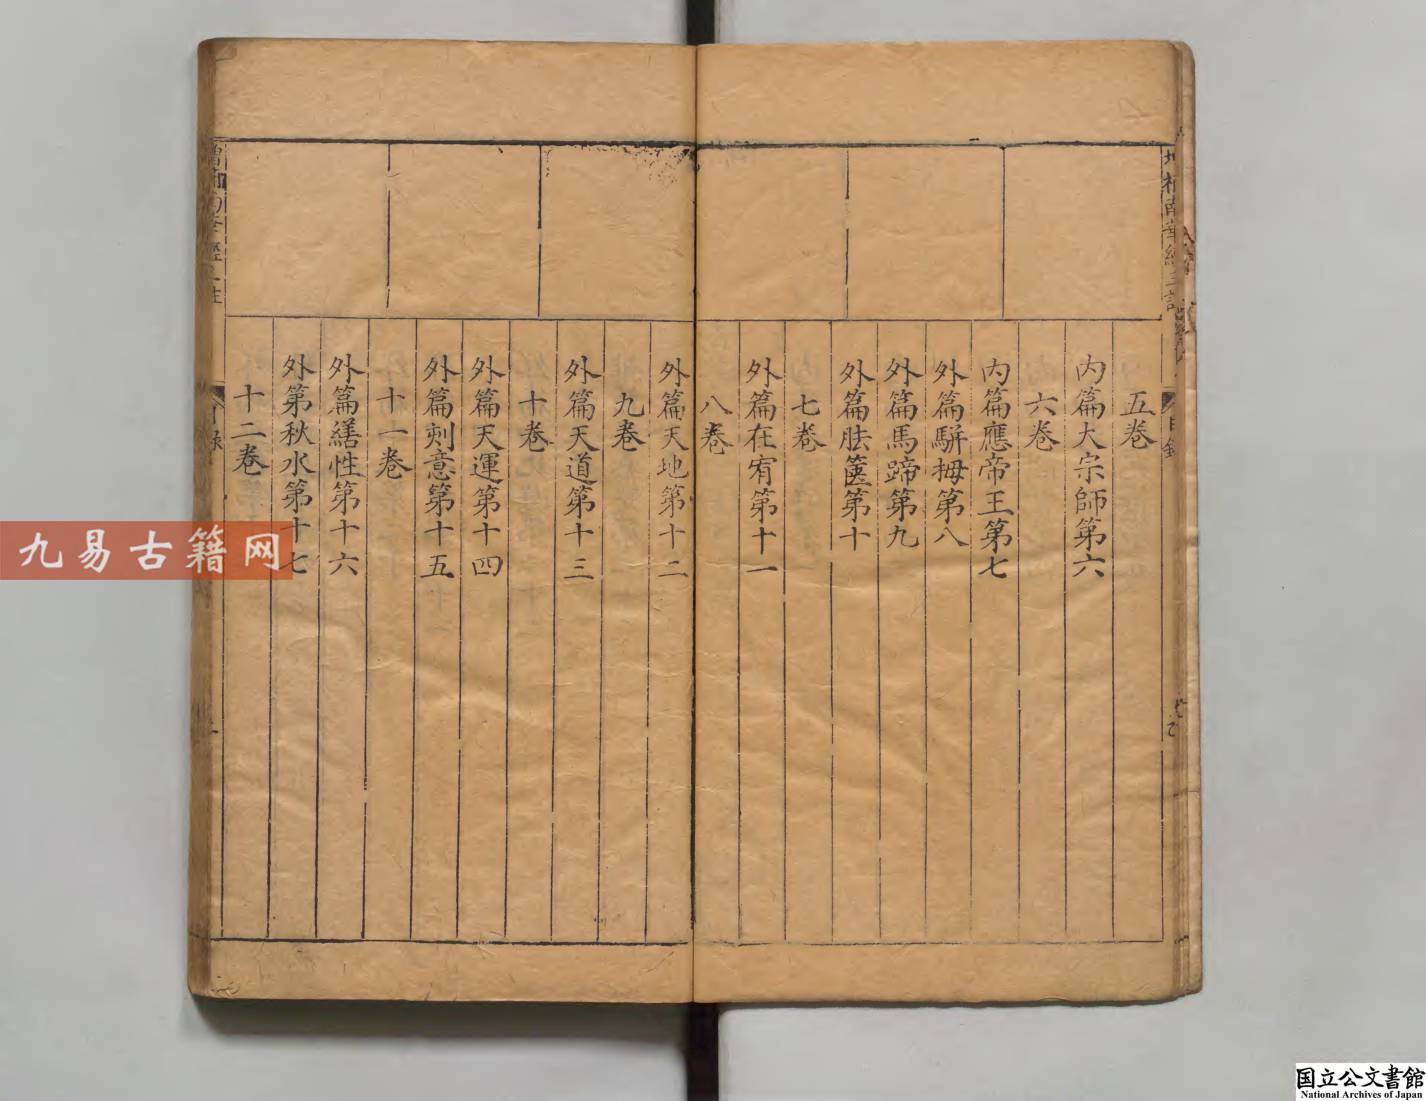 五卷
内篇大宗師第六
六卷
内篇應帝王第七
外篇駢拇第八
外篇馬蹄第九
外篇胠篋第十
七卷
外篇在宥第十一
八卷
外篇天地第十二
九卷
外篇天道第十三
十卷
外篇天運第十四
外篇刻意第十五
十一卷
外篇繕性第十六
外第秋水第十七
十二卷
目錄
九易古籍网
国立公文書館
National Archives of Japan